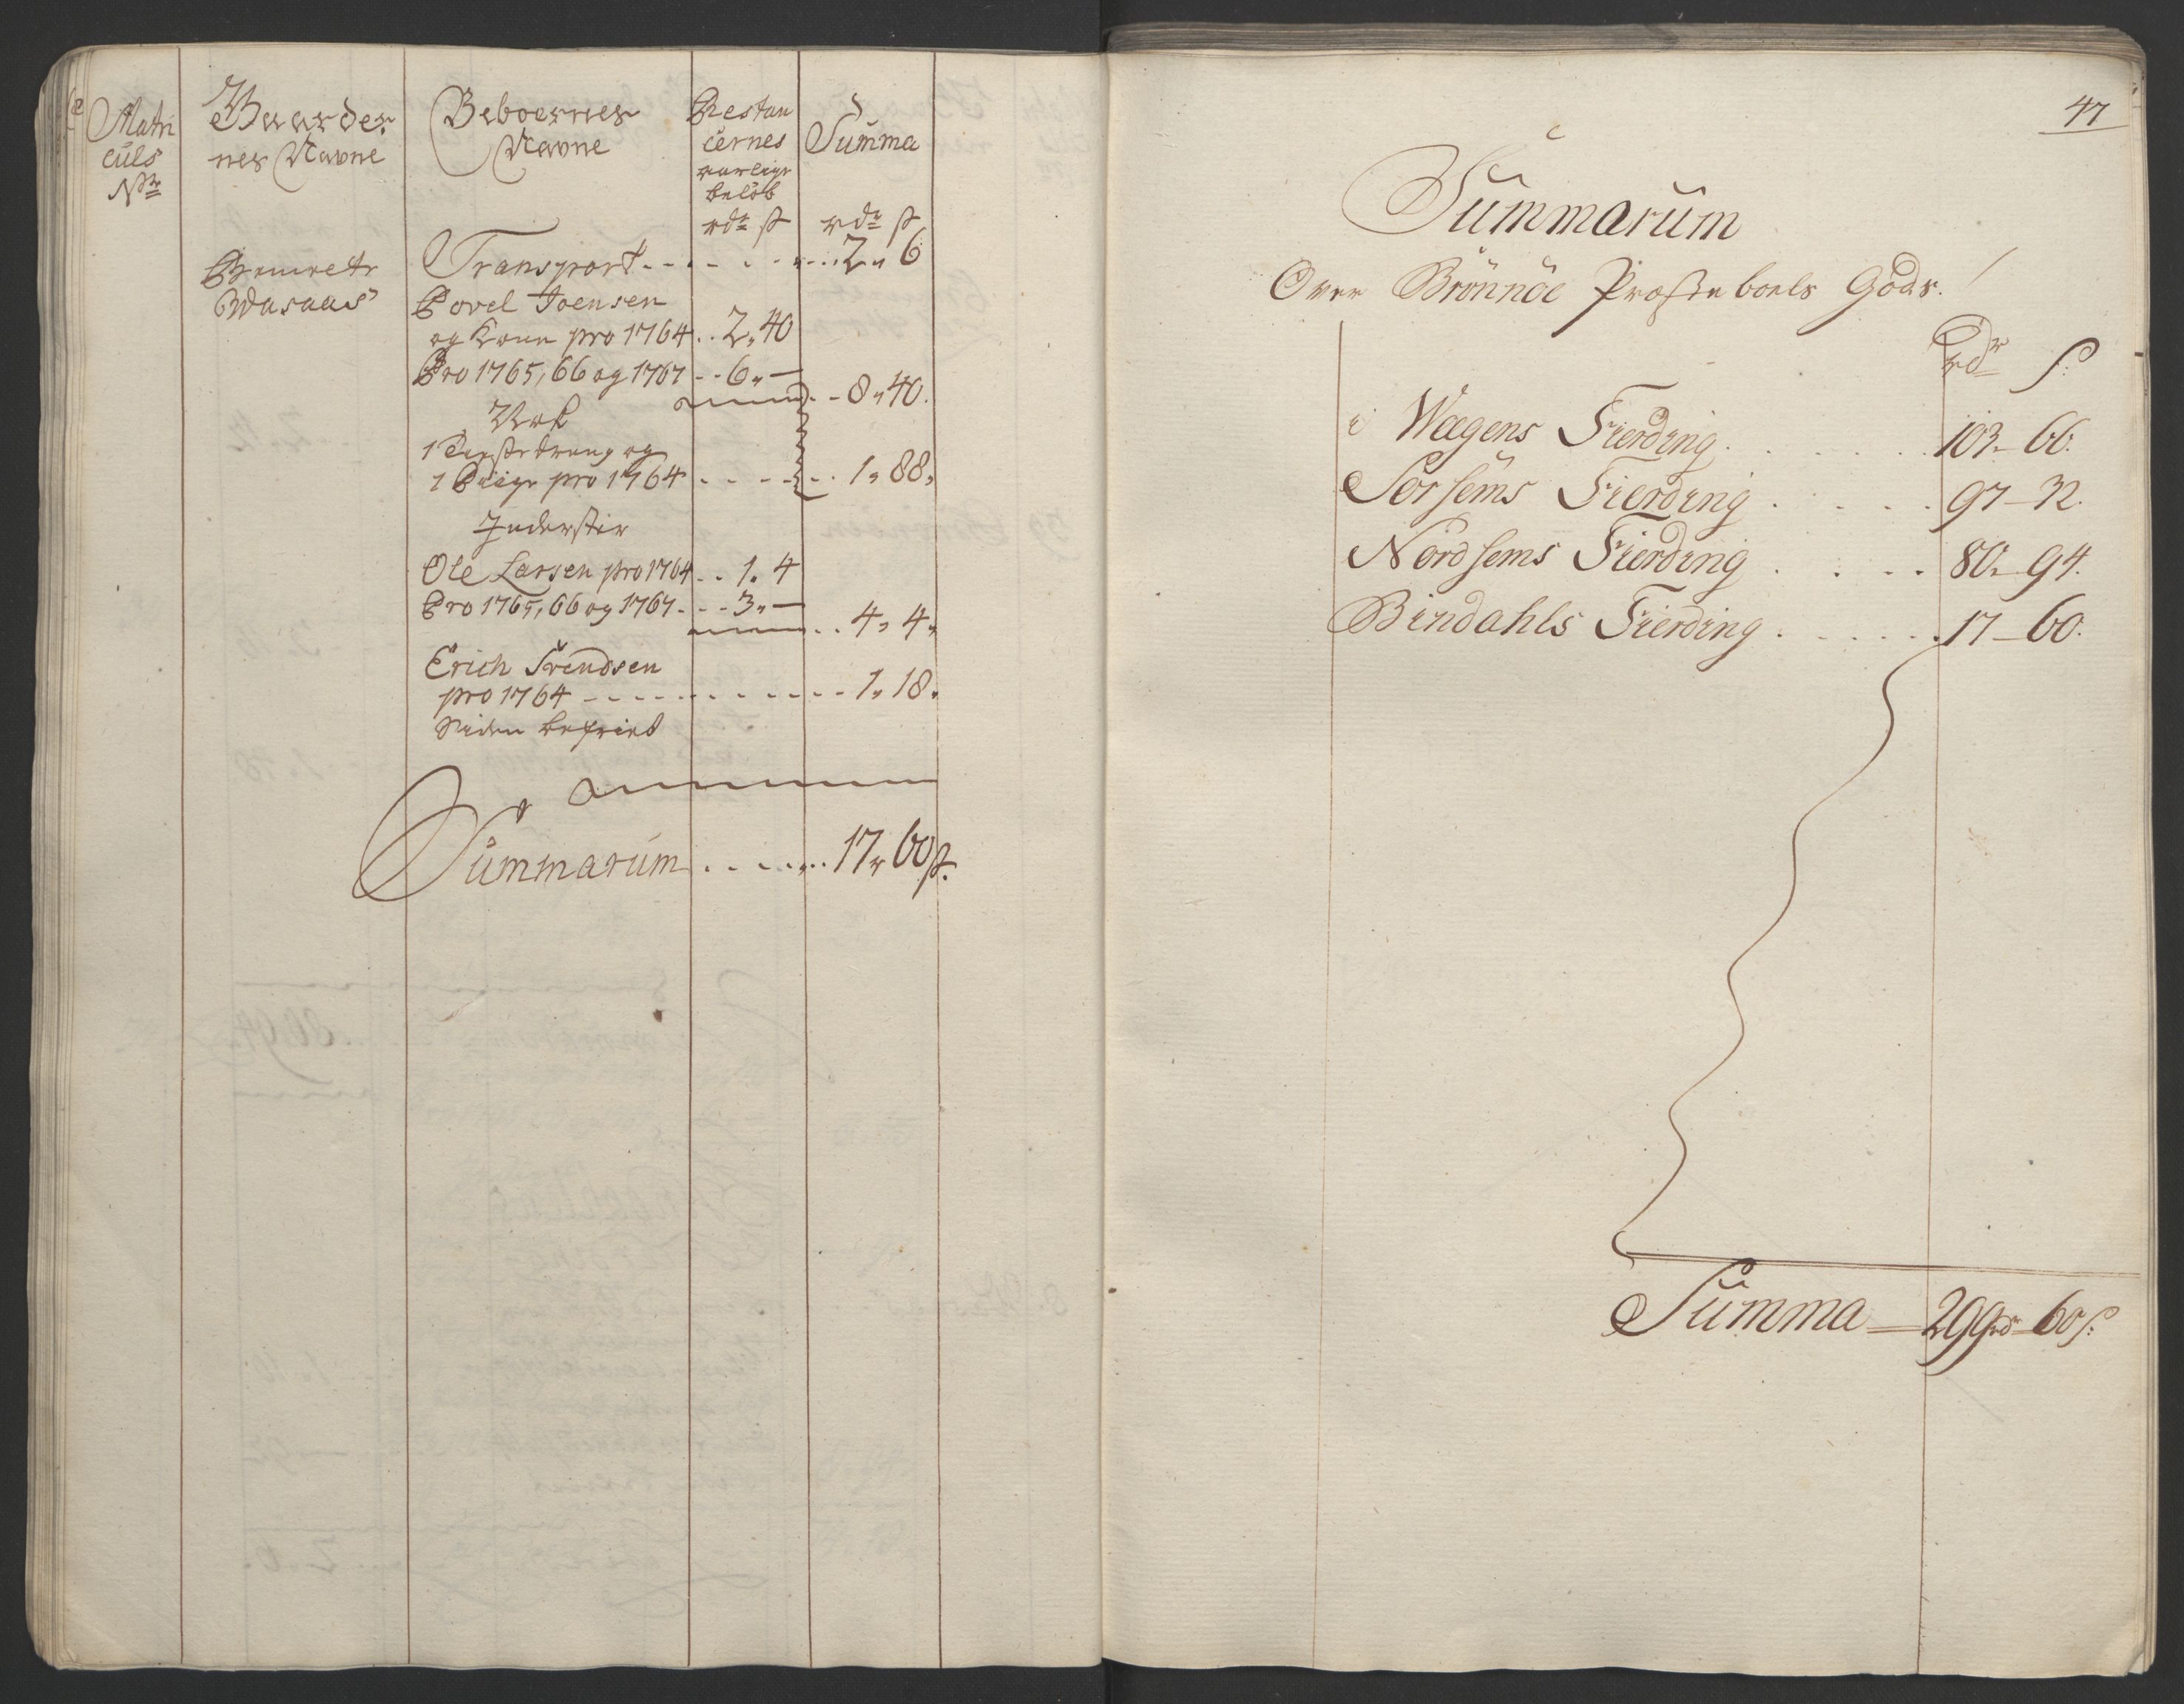 Matri
culs
No
Gaarder
nes Navne
Beboernes
Navne
Restan
cernes
aarlige
beløb
rdr ß
Summa
rdr ß
Transport - - - - - - 2 " 6
Wasaas
Povel Joensen
og Kone pro 1764 . . 2 " 40
Pro 1765, 66 og 1767 - - 6 " —
- - 8 " 40.
1 Tienestedreng og
1 Piige pro 1764 - - - - - - 1 " 88 "
Inderster
Ole Larsen pro 1764 . . 1 " 4
Pro 1765, 66 og 1767 - - - 3 " —
. . 4 " 4 "
Erich Svendsen
pro 1764 - - - - - - - - - - 1 " 18 "
Siden befried
Summarum . . . . . . . 17 " 60 ß.
47
Summarum
Over Brönnöe Præsteboels Gods.
rdr ß.
i Wægens Fierding . . . . . . . 103 - 66.
Sör sems Fierding . . . . . 97 - 32.
Nord sems Fierding . . . . 80 - 94.
Bindahls Fierding . . . . . . 17 - 60.
Summa — 299 rdr - 60 ß.